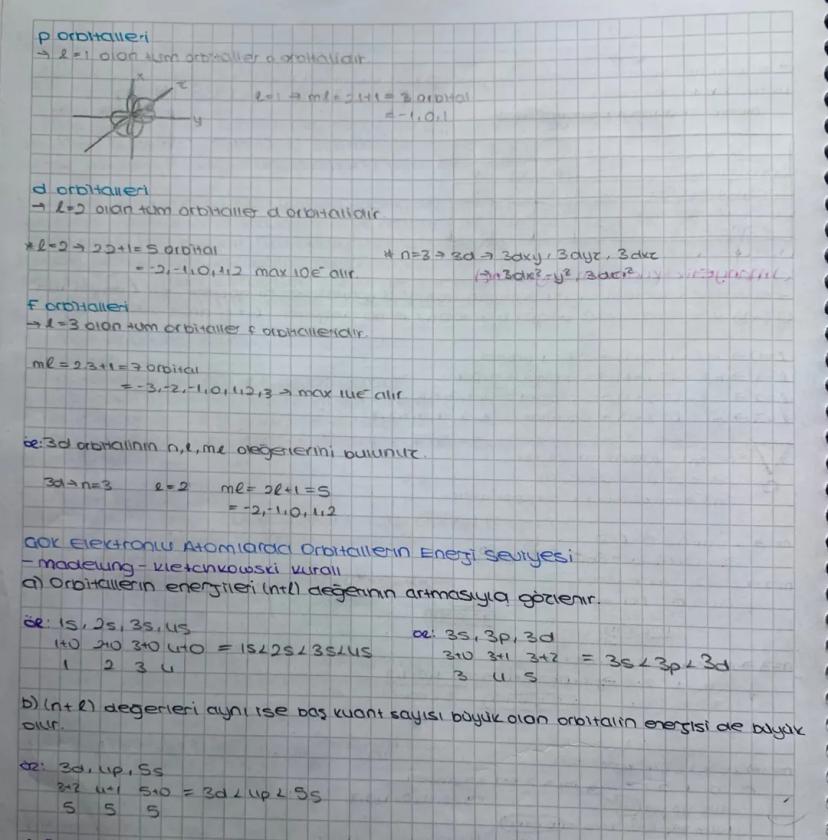 p orbitalleri
→ l=1 olan tüm orbitaller p orbitalidir
x
z
y
l=1 → ml = 2.1+1 = 3 orbital
= -1,0,1
d orbitalleri
→ l=2 olan tüm orbitaller d orbitalidir
* l=2 → 2.2+1=5 orbital
= -2,-1,0,1,2 max 10e⁻ alır.
* n=3 → 3d → 3dxy, 3dyz, 3dxz
→ 3dx²-y², 3dz²
f orbitalleri
→ l=3 olan tüm orbitaller f orbitalleridir.
ml = 2.3+1 = 7 orbital
= -3,-2,-1,0,1,2,3 → max 14e⁻ alır
ör: 3d orbitalinin n,l,ml değerlerini bulunuz.
3d → n=3 l=2 ml = 2l+1=5
= -2,-1,0,1,2
Çok Elektronlu Atomlarda Orbitallerin Enerji Seviyesi
- madelung - kletchkowski kuralı
a) Orbitallerin enerjileri (n+l) değerinin artmasıyla gözlenir.
ör: 1s, 2s, 3s, 4s
1+0 2+0 3+0 4+0 = 1s<2s<3s<4s
1 2 3 4
ör: 3s, 3p, 3d
3+0 3+1 3+2 = 3s<3p<3d
3 4 5
b) (n+l) değerleri aynı ise baş kuant sayısı büyük olan orbitalin enerjisi de büyük
olur.
ör: 3d, 4p, 5s
3+2 4+1 5+0 = 3d<4p<5s
5 5 5